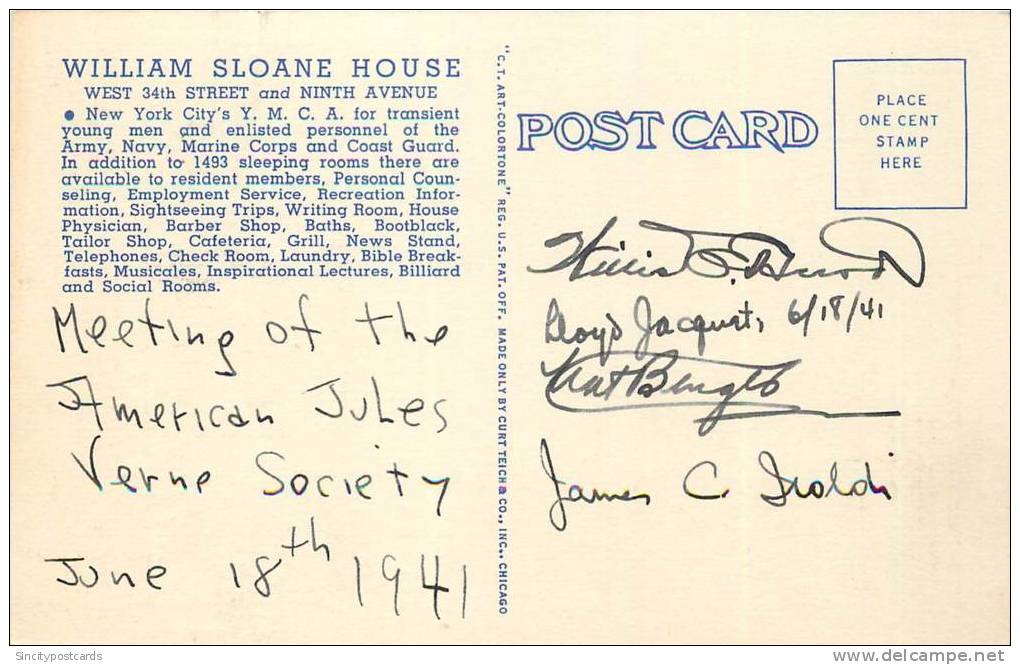 WILLIAM SLOANE HOUSE
WEST 34th STREET and NINTH AVENUE
● New York City's Y. M. C. A. for transient
young men and enlisted personnel of the
Army, Navy, Marine Corps and Coast Guard.
In addition to 1493 sleeping rooms there are
available to resident members, Personal Coun-
seling, Employment Service, Recreation Infor-
mation, Sightseeing Trips, Writing Room, House
Physician, Barber Shop, Baths, Bootblack,
Tailor Shop, Cafeteria, Grill, News Stand,
Telephones, Check Room, Laundry, Bible Break-
fasts, Musicales, Inspirational Lectures, Billiard
and Social Rooms.
Meeting of the
American Jules
Verne Society
June 18th 1941
"C.T. ART-COLORTONE" REG. U.S. PAT. OFF. MADE ONLY BY CURT TEICH & CO., INC., CHICAGO
POST CARD
PLACE
ONE CENT
STAMP
HERE
Willis
Lloyd Jacquet, 6/18/41
James C. Iraldi
Sincitypostcards
www.delcampe.net